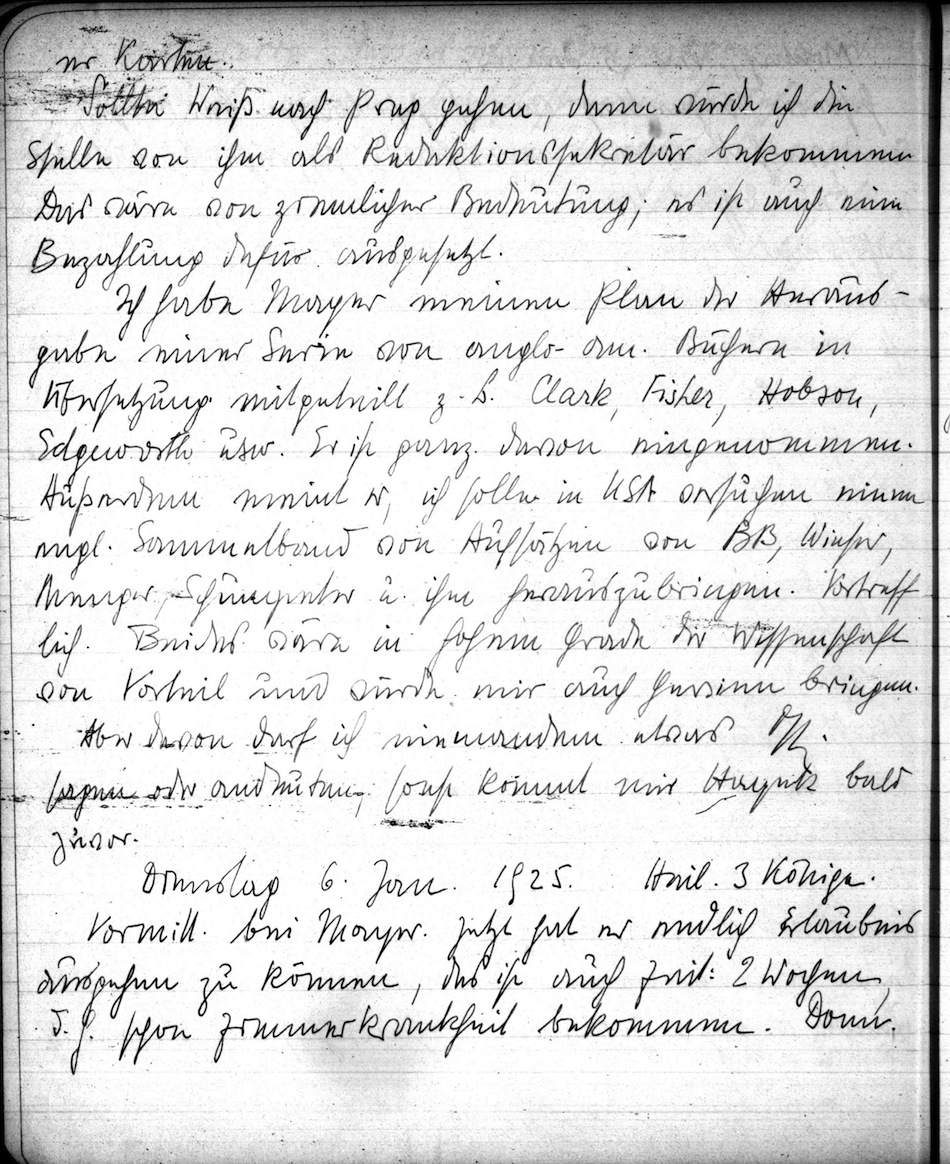 er Karten.
Sollte Weiß nach Prag gehen, dann würde ich die
Stelle von ihm als Redaktionssekretär bekommen
Das wäre von ziemlicher Bedeutung; es ist auch eine
Bezahlung dafür ausgesetzt.
Ich habe Mayer meinen Plan der Heraus-
gabe einer Serie von anglo-am. Büchern in
Übersetzung mitgeteilt z.B. Clark, Fisher, Hobson,
Edgeworth usw. Er ist ganz davon eingenommen.
Außerdem meint er, ich solle in USA versuchen einen
engl. Sammelband von Aufsätzen von BB, Wieser,
Menger, Schumpeter u. ihm herauszubringen. Vortreff
lich. Beides wäre in hohem Grade der Wissenschaft
von Vorteil und würde mir auch Gewinn bringen.
Aber davon darf ich niemandem etwas
sagen oder andeuten, sonst kommt mir Hayek bald
zuvor.
Dienstag 6. Jan. 1925. Heil. 3 Könige.
Vormitt. bei Mayer. Jetzt hat er endlich Erlaubnis
ausgehen zu können, das ist auch Zeit: 2 Wochen,
d. h. schon Zimmerkrankheit bekommen. Dann